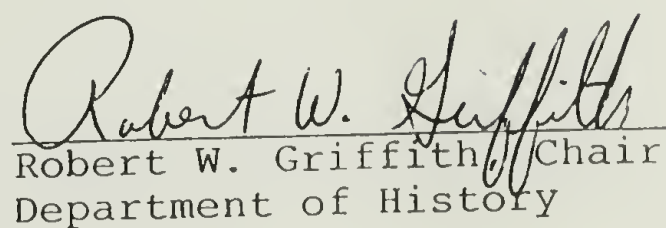 Robert W. Griffith
Robert W. Griffith, Chair
Department of History